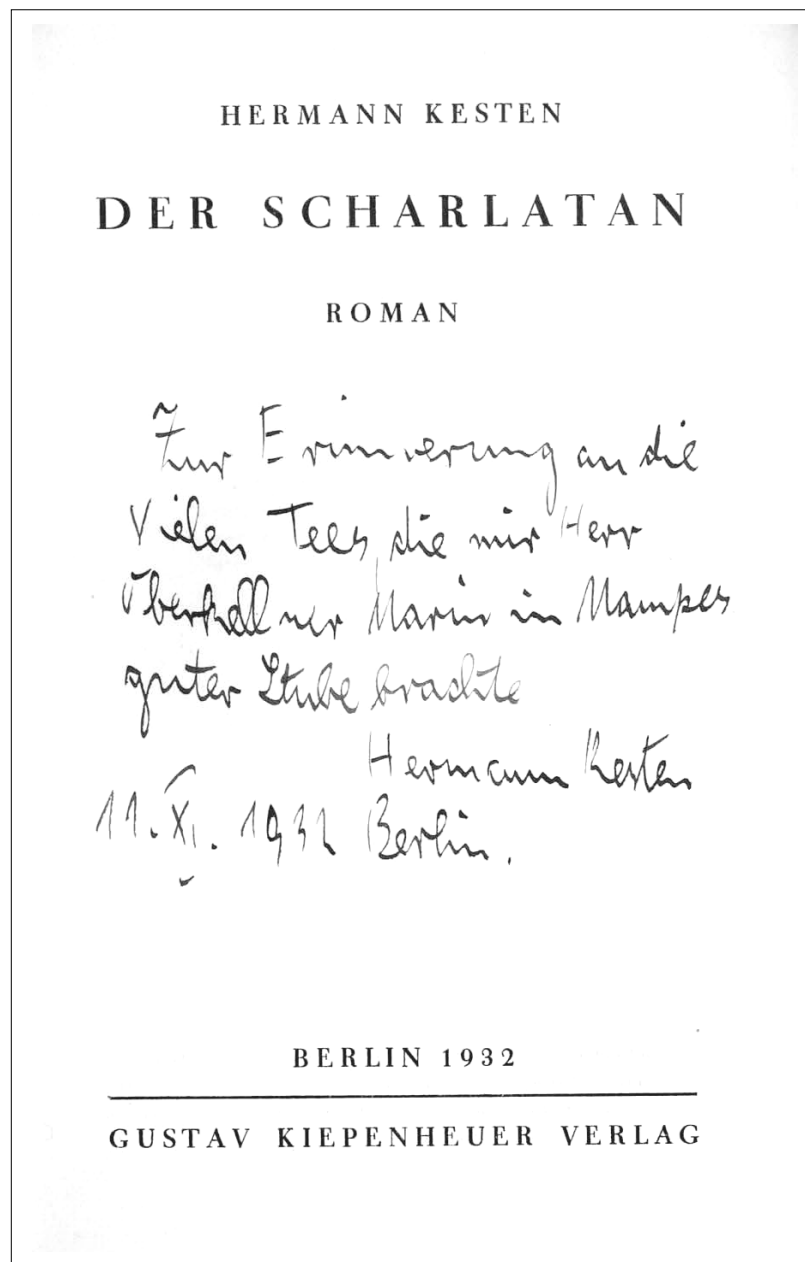 HERMANN KESTEN
DER SCHARLATAN
ROMAN
Zur Erinnerung an die
vielen Tees, die mir Herr
Oberkellner Marin in Mampes
guter Stube brachte
Hermann Kesten
11. XI. 1932 Berlin.
BERLIN 1932
GUSTAV KIEPENHEUER VERLAG